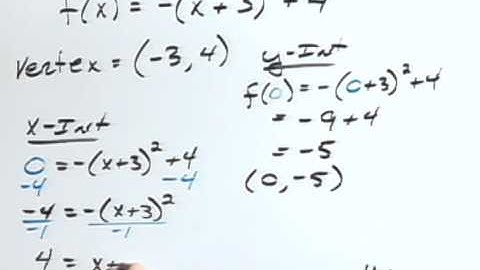 f(x) = -(x+3) + 4
vertex = (-3, 4)
y-Int
f(0) = -(0+3)² + 4
= -9 + 4
= -5
(0, -5)
x-Int
0 = -(x+3)² + 4
-4 -4
-4 = -(x+3)²
-1 -1
4 = x+